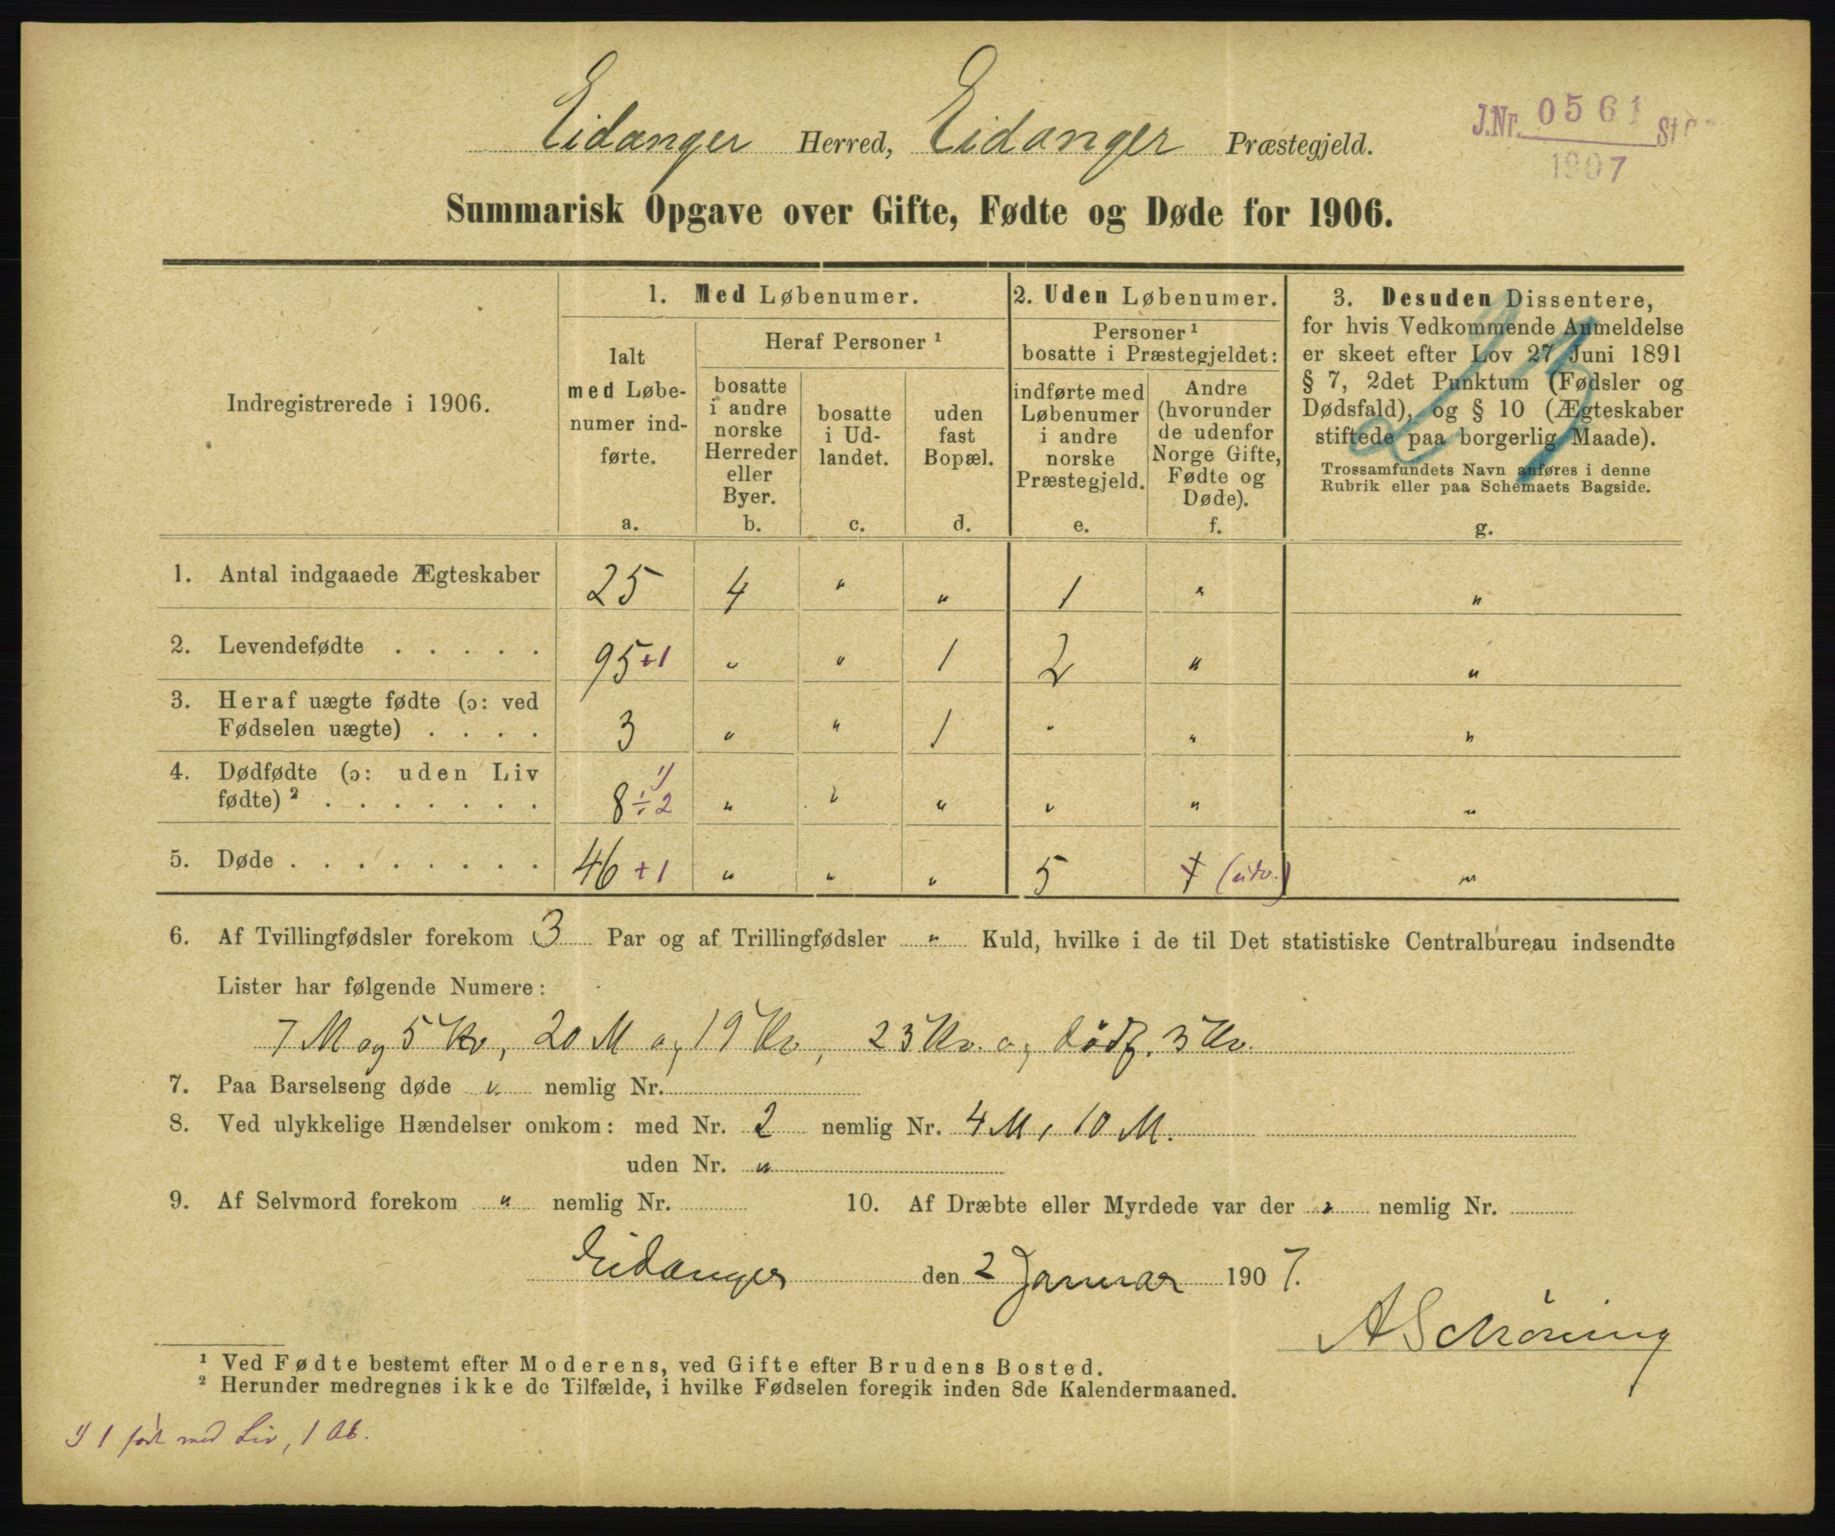 Eidanger Herred, Eidanger Præstegjeld.
J.Nr. 0561 St
1907
Summarisk Opgave over Gifte, Fødte og Døde for 1906.
Indregistrerede i 1906.
1. Med Løbenumer.
Ialt
med Løbe-
numer ind-
førte.
a.
Heraf Personer ¹
bosatte
i andre
norske
Herreder
eller
Byer.
b.
bosatte
i Ud-
landet.
c.
uden
fast
Bopæl.
d.
2. Uden Løbenumer.
Personer ¹
bosatte i Præstegjeldet:
indførte med
Løbenumer
i andre
norske
Præstegjeld.
e.
Andre
(hvorunder
de udenfor
Norge Gifte,
Fødte og
Døde).
f.
3. Desuden Dissentere,
for hvis Vedkommende Anmeldelse
er skeet efter Lov 27 Juni 1891
§ 7, 2det Punktum (Fødsler og
Dødsfald), og § 10 (Ægteskaber
stiftede paa borgerlig Maade).
Trossamfundets Navn anføres i denne
Rubrik eller paa Schemaets Bagside.
g.
1. Antal indgaaede Ægteskaber 25 4 " " 1 " "
2. Levendefødte . . . . . 95+1 " " 1 2 " "
3. Heraf uægte fødte (ɔ: ved
Fødselen uægte) . . . . 3 " " 1 " " "
4. Dødfødte (ɔ: uden Liv
fødte) ² . . . . . . . 8÷2 ¹⁾ " " " " " "
5. Døde . . . . . . . . 46+1 " " " 5 + (udv.) "
6. Af Tvillingfødsler forekom 3 Par og af Trillingfødsler " Kuld, hvilke i de til Det statistiske Centralbureau indsendte
Lister har følgende Numere:
7 M og 5 Kv, 20 M og 19 Kv, 23 Kv. og dødf. 3 Kv.
7. Paa Barselseng døde " nemlig Nr.
8. Ved ulykkelige Hændelser omkom: med Nr. 2 nemlig Nr. 4 M, 10 M.
uden Nr. "
9. Af Selvmord forekom " nemlig Nr.
10. Af Dræbte eller Myrdede var der " nemlig Nr.
Eidanger den 2 Januar 1907.
A Schröning
¹ Ved Fødte bestemt efter Moderens, ved Gifte efter Brudens Bosted.
² Herunder medregnes ikke de Tilfælde, i hvilke Fødselen foregik inden 8de Kalendermaaned.
¹⁾ 1 født med Liv, 1 Ab.